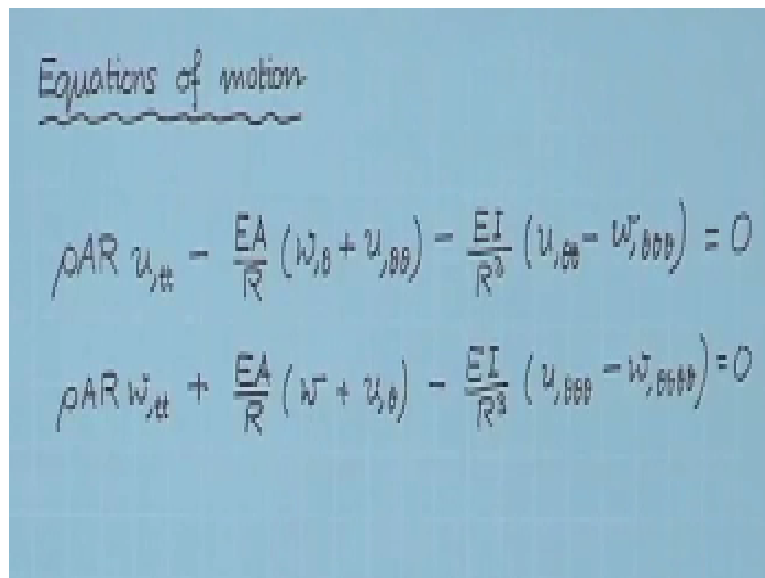 Equations of motion
ρAR u,tt - EA/R (w,θ + u,θθ) - EI/R³ (u,θθ - w,θθθ) = 0
ρAR w,tt + EA/R (w + u,θ) - EI/R³ (u,θθθ - w,θθθθ) = 0